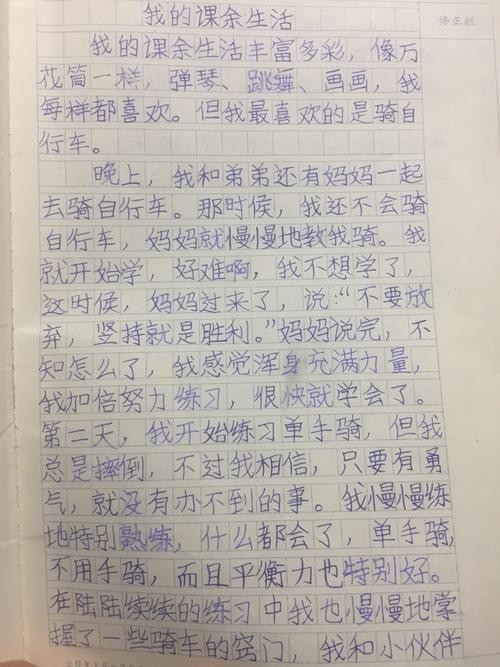 我的课余生活
修正栏
我的课余生活丰富多彩，像万
花筒一样，弹琴、跳舞、画画，我
每样都喜欢。但我最喜欢的是骑自
行车。
晚上，我和弟弟还有妈妈一起
去骑自行车。那时候，我还不会骑
自行车，妈妈就慢慢地教我骑。我
就开始学，好难啊，我不想学了，
这时候，妈妈过来了，说：“不要放
弃，竖持就是胜利。”妈妈说完，不
知怎么了，我感觉浑身充满力量，
我加倍努力练习，很快就学会了。
第二天，我开始练习单手骑，但我
总是摔倒，不过我相信，只要有勇
气，就没有办不到的事。我慢慢练
地特别熟练，什么都会了，单手骑，
不用手骑，而且平衡力也特别好。
在陆陆续续的练习中我也慢慢地掌
握了一些骑车的窍门，我和小伙伴